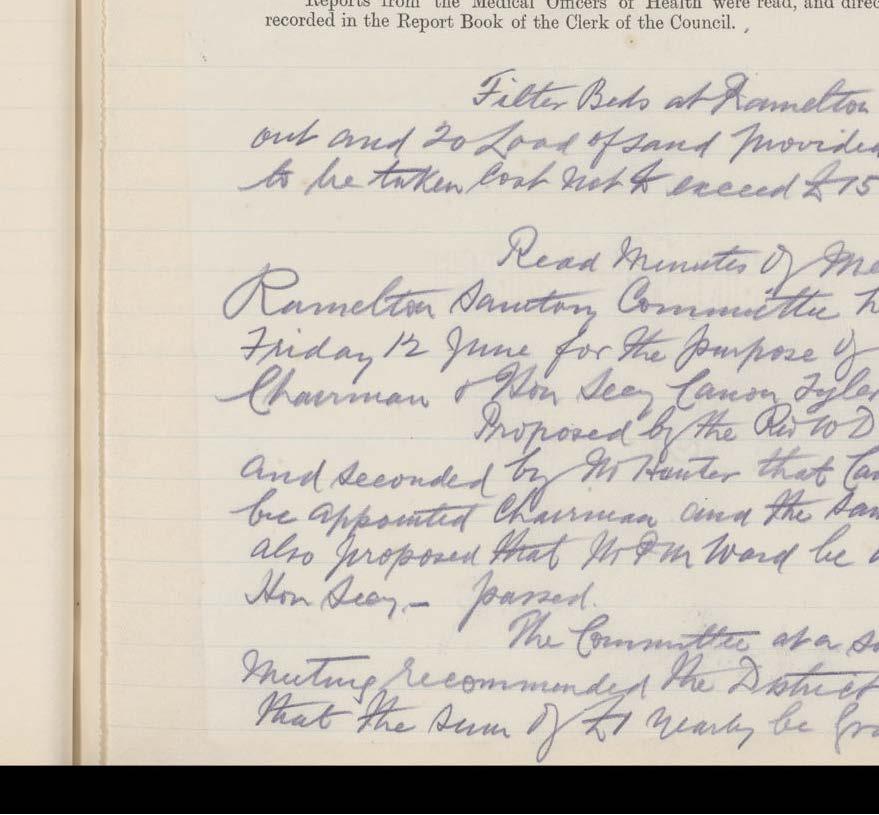 Reports from the Medical Officers of Health were read, and direc
recorded in the Report Book of the Clerk of the Council.
Filter Beds at Ramelton
out and 20 Load of sand provided
to be taken Cost not to exceed £15
Read Minutes of Me
Ramelton Sanitary Committee h
Friday 12 June for the purpose of
Chairman & Hon Secy Canon Tyler
Proposed by the Rev W D
and seconded by Mr Hunter that Can
be appointed Chairman and the Sam
also proposed that Mr F M Ward be a
Hon Secy - passed.
The Committee at a su
Meeting recommended the District
that the sum of £1 yearly be gra